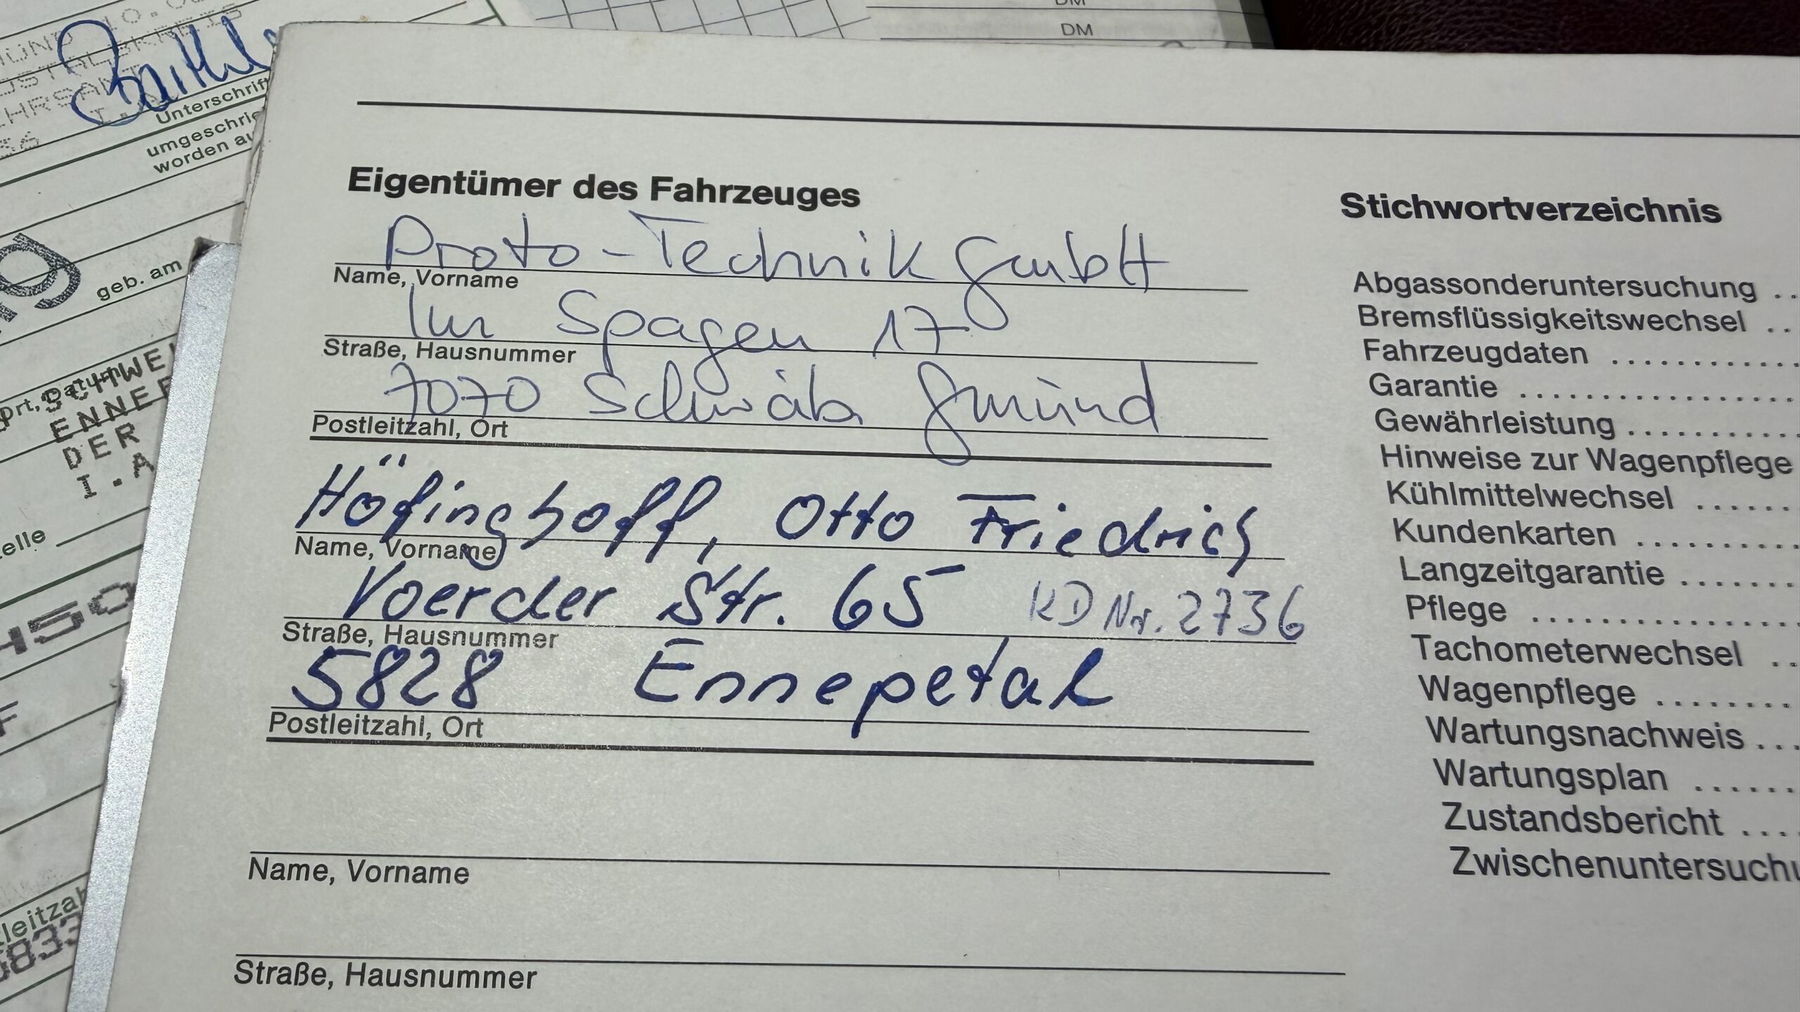 DM
DM
Unterschrift
umgeschrie
worden au
geb. am
Ort, Datum
SCHWE
ENNEP
DER
I.A
elle
leitzah
Eigentümer des Fahrzeuges
Proto-Technik GmbH
Name, Vorname
Im Spagen 17
Straße, Hausnummer
7070 Schwäb Gmünd
Postleitzahl, Ort
Höfinghoff, Otto Friedrich
Name, Vorname
Voerder Str. 65 KD Nr. 2736
Straße, Hausnummer
5828 Ennepetal
Postleitzahl, Ort
Name, Vorname
Straße, Hausnummer
Stichwortverzeichnis
Abgassonderuntersuchung ..
Bremsflüssigkeitswechsel ..
Fahrzeugdaten ............
Garantie .................
Gewährleistung ...........
Hinweise zur Wagenpflege
Kühlmittelwechsel .......
Kundenkarten ...........
Langzeitgarantie ........
Pflege ..................
Tachometerwechsel ..
Wagenpflege .........
Wartungsnachweis ...
Wartungsplan .......
Zustandsbericht ....
Zwischenuntersuchu